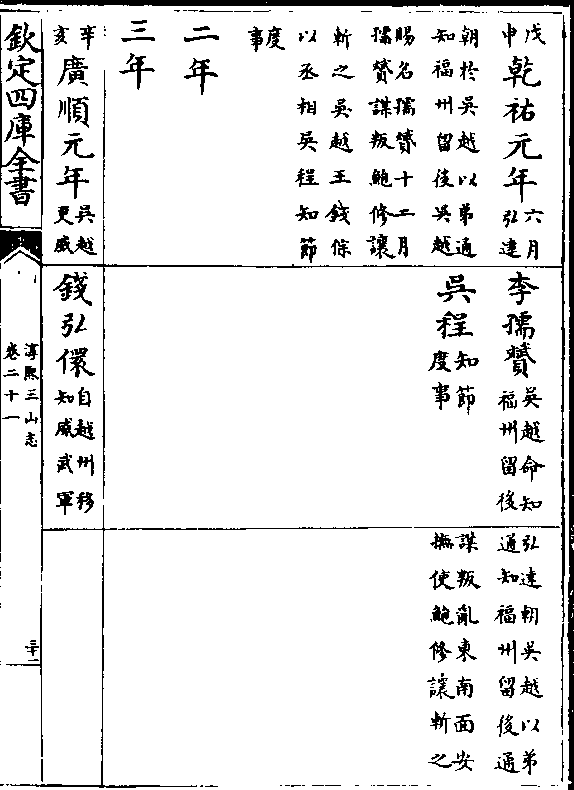 戊申
乾祐元年
六月
弘達
朝於吳越以弟通
知福州留後吳越
賜名孺贇十二月
孺贇謀叛鮑修讓
斬之吳越王錢俶
以丞相吳程知節
度
事
二年
三年
辛亥
廣順元年
吳越
更威
李孺贇
吳越命知
福州留後
吳程
知節
度事
錢弘儇
自越州移
知威武軍
弘達朝吳越以弟
通知福州留後通
謀叛亂東南面安
撫使鮑修讓斬之
欽定四庫全書
淳熙三山志
卷二十一